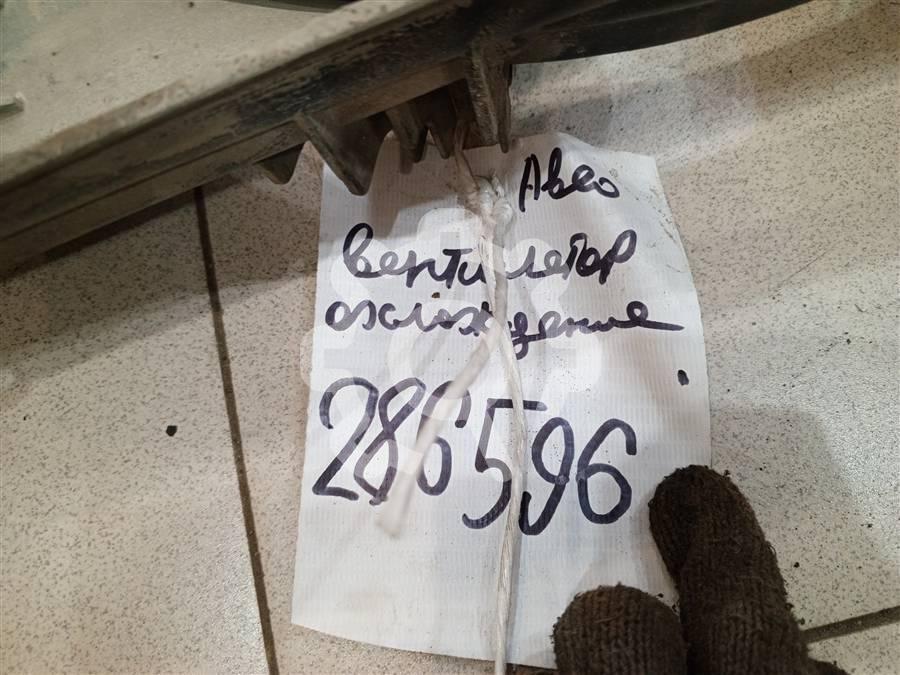 Авео
вентилятор
охлаждение
286596